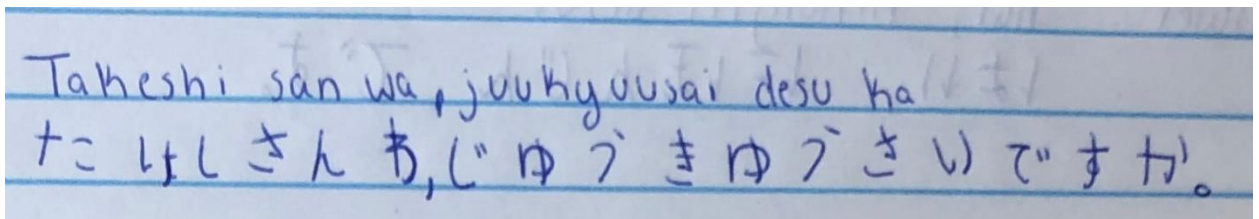 Takeshi san wa, juukyuusai desu ka
たけしさんわ,じゆうきゆうさいですか。